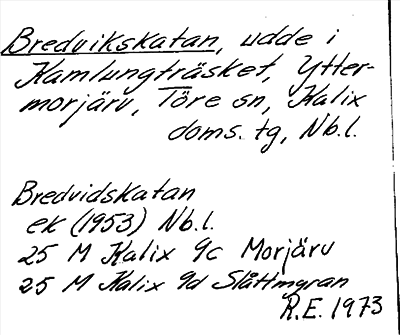 Bredvikskatan, udde i
Kamlungträsket, Ytter-
morjärv, Töre sn, Kalix
doms. tg, Nb.l.
Bredvidskatan
ek (1953) Nb.l.
25 M Kalix 9c Morjärv
25 M Kalix 9d Slåttmyran
R.E. 1973